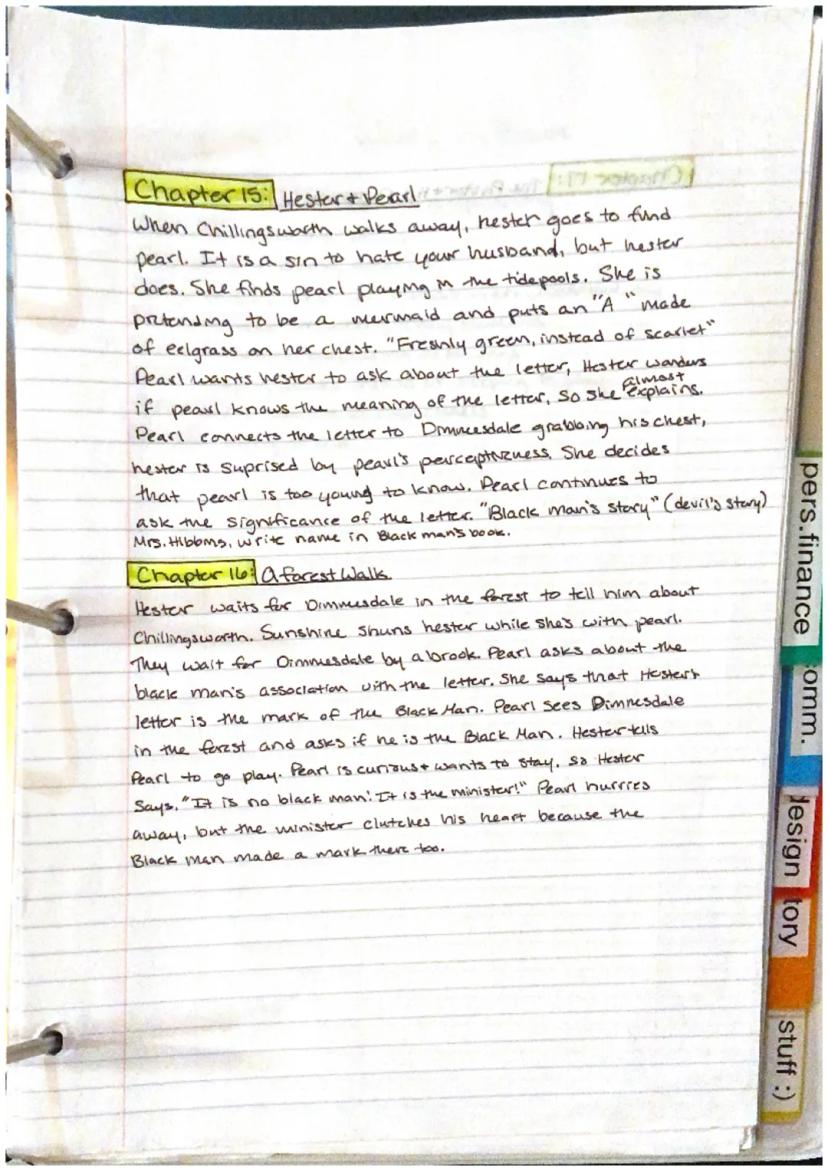 Chapter 15: Hester + Pearl
When Chillingswarth walks away, hester goes to find
pearl. It is a sin to hate your husband, but hester
does. She finds pearl playing in the tidepools. She is
pretending to be a mermaid and puts an "A" made
of eelgrass on her chest. "Freshly green, instead of scarlet"
Pearl wants hester to ask about the letter, Hester wonders
if pearl knows the meaning of the letter, so she almost explains.
Pearl connects the letter to Dimmesdale grabbing his chest,
hester is suprised by pearl's perceptiveness. She decides
that pearl is too young to know. Pearl continues to
ask the significance of the letter. "Black man's story" (devil's story)
Mrs. Hibbins, write name in Black man's book.
Chapter 16: A forest Walk
Hester waits for Dimmesdale in the forest to tell him about
Chillingsworth. Sunshine shuns hester while she's with pearl.
They wait for Dimmesdale by a brook. Pearl asks about the
black man's association with the letter. She says that Hester's
letter is the mark of the Black Man. Pearl sees Dimmesdale
in the forest and asks if he is the Black Man. Hester tells
Pearl to go play. Pearl is curious + wants to stay. so Hester
says, "It is no black man! It is the minister!" Pearl hurries
away, but the minister clutches his heart because the
Black man made a mark there too.
pers.finance
omm.
design
tory
stuff :)